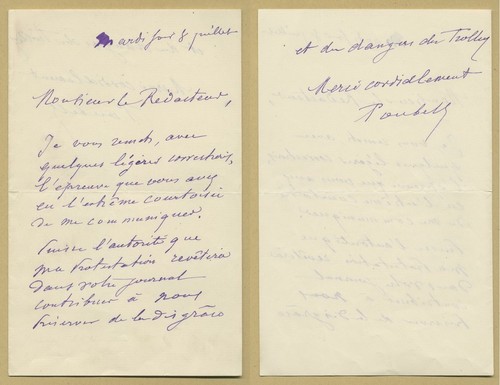 mardi soir 8 juillet
Monsieur le Rédacteur,
Je vous remets, avec
quelques légères corrections,
l'épreuve que vous avez
eu l'extrême courtoisie
de me communiquer.
Puisse l'autorité que
ma protestation revêtira
dans votre journal
contribuer à nous
préserver de la disgrâce
et du danger du Trolley
Merci cordialement
Poubelle